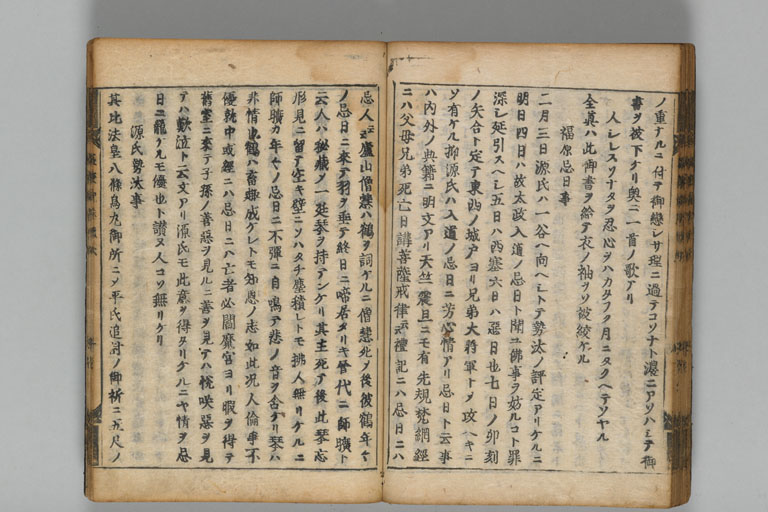 ノ重ナルニ付テ御戀シサ理ニ過テコソナト濃ニアソハシテ御
書ヲ被下ケリ奥ニ一首ノ歌アリ
人シレスソナタヲ忍心ヲハカタフク月ニタクヘテソヤル
全眞ハ此御書ヲ給テ衣ノ袖ヲソ被絞ケル
福原忌日事
二月三日源氏ハ一谷ヘ向ヘシトテ勢汰ノ評定アリケルニ
明日四日ハ故太政入道ノ忌日ト聞ユ佛事ヲ妨ルコト罪
深シ延引スヘシ五日ハ西塞六日ハ惡日也七日ノ卯刻
ノ矢合ト定テ東西ノ城戸ヨリ兄弟大將軍トメ攻ヘキニ
ソ有ケル抑源氏ハ入道ノ忌日ニ芳心情アリ忌日ト云事
ハ内外ノ典籍ニ明文アリ天竺震旦ニモ有先規梵網經
ニハ父母兄弟死亡日講菩薩戒律云禮記ニハ忌日ニハ
忌人云盧山僧
ノ忌日ニ來テ羽ヲ垂テ終日ニ啼居タリキ晉代ニ師曠ト
云人ハ秘藏ノ一張琴ヲ持テンケリ其主死テ後此琴忘
形見ニ留テ空キ壁ニソハタチ塵積レトモ拂人無リケルニ
師曠カ年々ノ忌日ニ不彈ニ自鳴テ悲ノ音ヲ含ケリ琴ハ
非情也鶴ハ畜類成ケレトモ知恩ノ志如此況人倫事不
優就中或經ニハ忌日ニハ亡者必閻魔宮ヨリ暇ヲ得テ
舊室ニ來テ子孫ノ善惡ヲ見ルニ善ヲ見テハ悦咲惡ヲ見
テハ歎泣ト云文アリ源氏モ此意ヲ得タリケルニヤ情ヲ忌
日ニ籠ケルモ優也ト讃ヌ人コソ無リケリ
源氏勢汰事
其比法皇八條烏丸御所ニメ平氏追討ノ御祈ニ五尺ノ